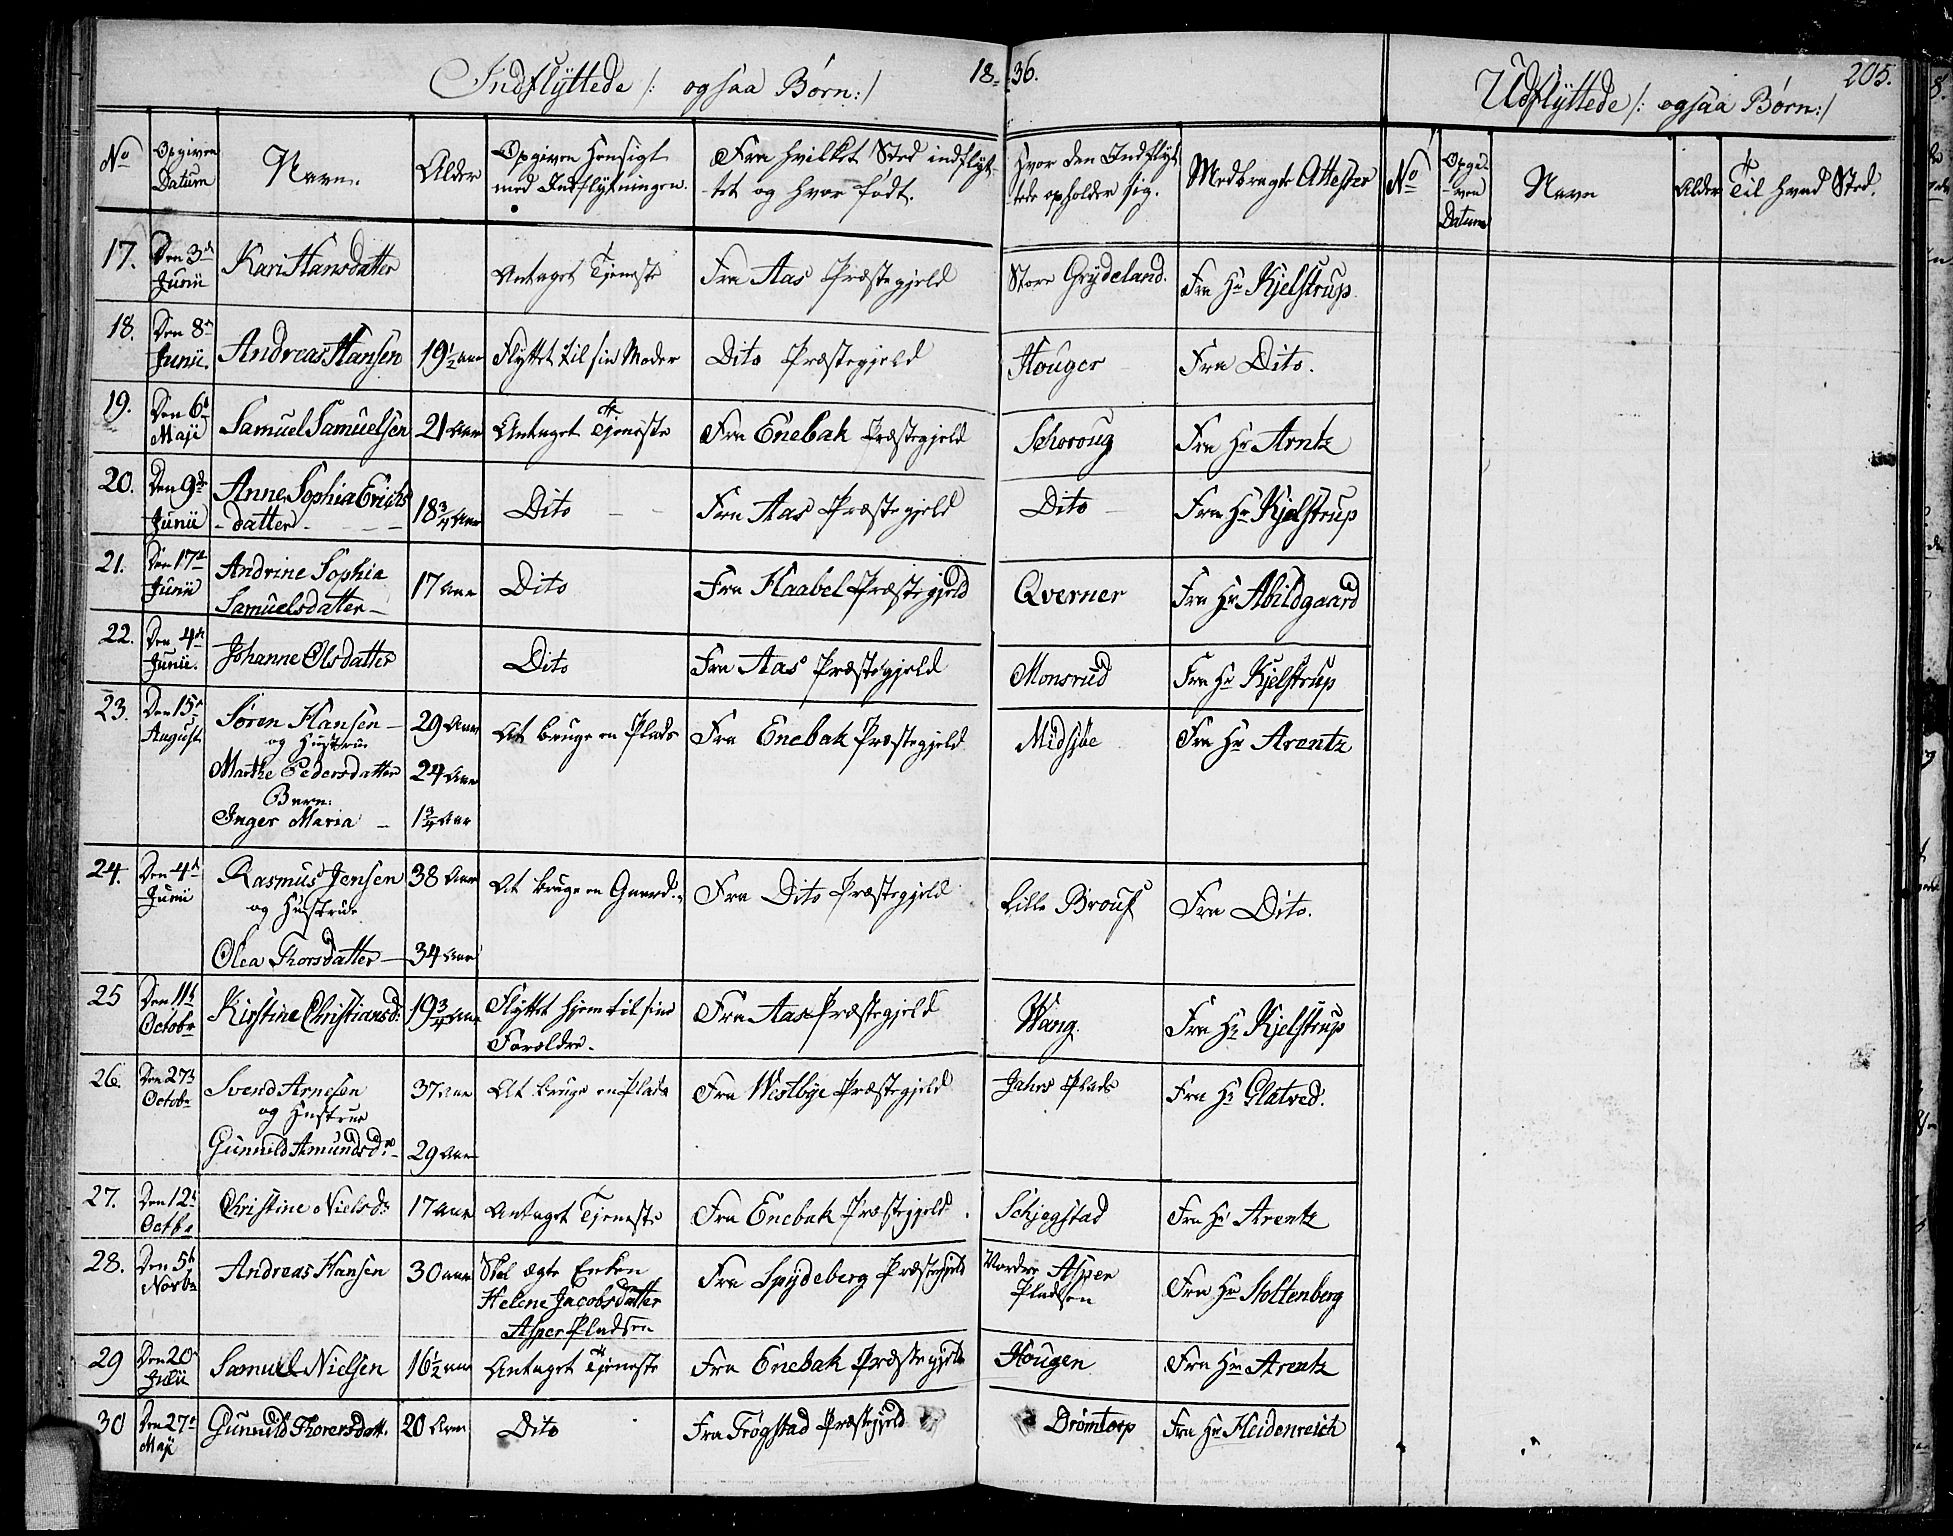 Indflyttede /: ogsaa Børn :/
18 36.
Udflyttede /: ogsaa Børn :/
205.
No
Opgiven Datum
Navn.
Alder
Opgiven Hensigt med Indflytningen.
Fra hvilket Sted indflyttet og hvor født.
Hvor den Indflyttede opholder sig.
Medbragte Attester
No
Opgiven Datum
Navn
Alder
Til hvad Sted.
17. Den 3de Junii Kari Hansdatter Antaget Tjeneste Fra Aas Præstegjeld Store Grydeland. Fra Hr Kjelstrup
18. Den 8de Junii. Andreas Hansen 19½ Aar Flyttet til sin Moder Dito Præstegjeld Houger Fra Dito.
19. Den 6te Maji Samuel Samuelsen 21 Aar Antaget Tjeneste Fra Enebak Præstegjeld Schoroug Fra Hr Arntz
20. Den 9de Junii Anne Sophia Erichs
datter 18¾ Aar Dito Fra Aas Præstegjeld Dito Fra Hr Kjelstrup
21. Den 17de Junii Andrine Sophia
Samuelsdatter 17 Aar Dito Fra Haabel Præstegjeld Qverner Fra Hr Abildgaard
22. Den 4de Junii. Johanne Olsdatter Dito Fra Aas Præstegjeld Monsrud Fra Hr Kjelstrup
23. Den 15de August Søren Hansen 29 Aar At bruge en Plads Fra Enebak Præstegjeld Midsjøe Fra Hr Arentz
og Hustrue
Marthe Pedersdatter 24 Aar
Barn:
Inger Maria 1¾ Aar
24. Den 4de Junii Rasmus Jensen 38 Aar At bruge en Gaard. Fra Dito Præstegjeld Lille Brouf Fra Dito.
og Hustrue
Olea Thorsdatter 34 Aar
25 Den 11te Octobr Kirstine Christiansd: 19¾ Aar Flyttet hjem til sine
Forældre. Fra Aas Præstegjeld Wang. Fra Hr Kjelstrup
26. Den 27de Octobr Svend Arnesen 37 Aar At bruge en Plads Fra Westbye Præstegjeld Jahrs Plads Fra Hr Glatved.
og Hustrue
Gunnild Amundsdr 29 Aar
27. Den 12te Octbr Christine Nielsdr 17 Aar Antaget Tjeneste Fra Enebak Præstegjeld. Schjegstad Fra Hr Arentz
28. Den 5te Novbr Andreas Hansen 30 Aar Skal ægte Enken
Helene Jacobsdatter
Asper Pladsen Fra Spydeberg Præstegjeld Nordre Asper
Pladsen Fra Hr Stoltenberg
29 Den 20de Julii Samuel Nielsen 16½ Aar Antaget Tjeneste Fra Enebak Præstegjeld Hougen Fra Hr Arentz
30 Den 27de Maji Gunnild Thorersdatt. 20 Aar Dito Fra Trøgstad Præstegjeld Drømtorp Fra Hr Heidenreich